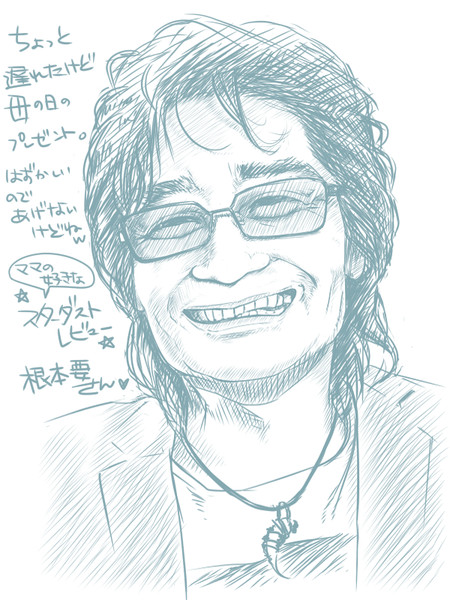 ちょっと
遅れたけど
母の日の
プレゼント。
はずかしい
ので
あげない
けどねw
ママの
好きな
☆スターダスト
レビュー☆
根本要
さん♥